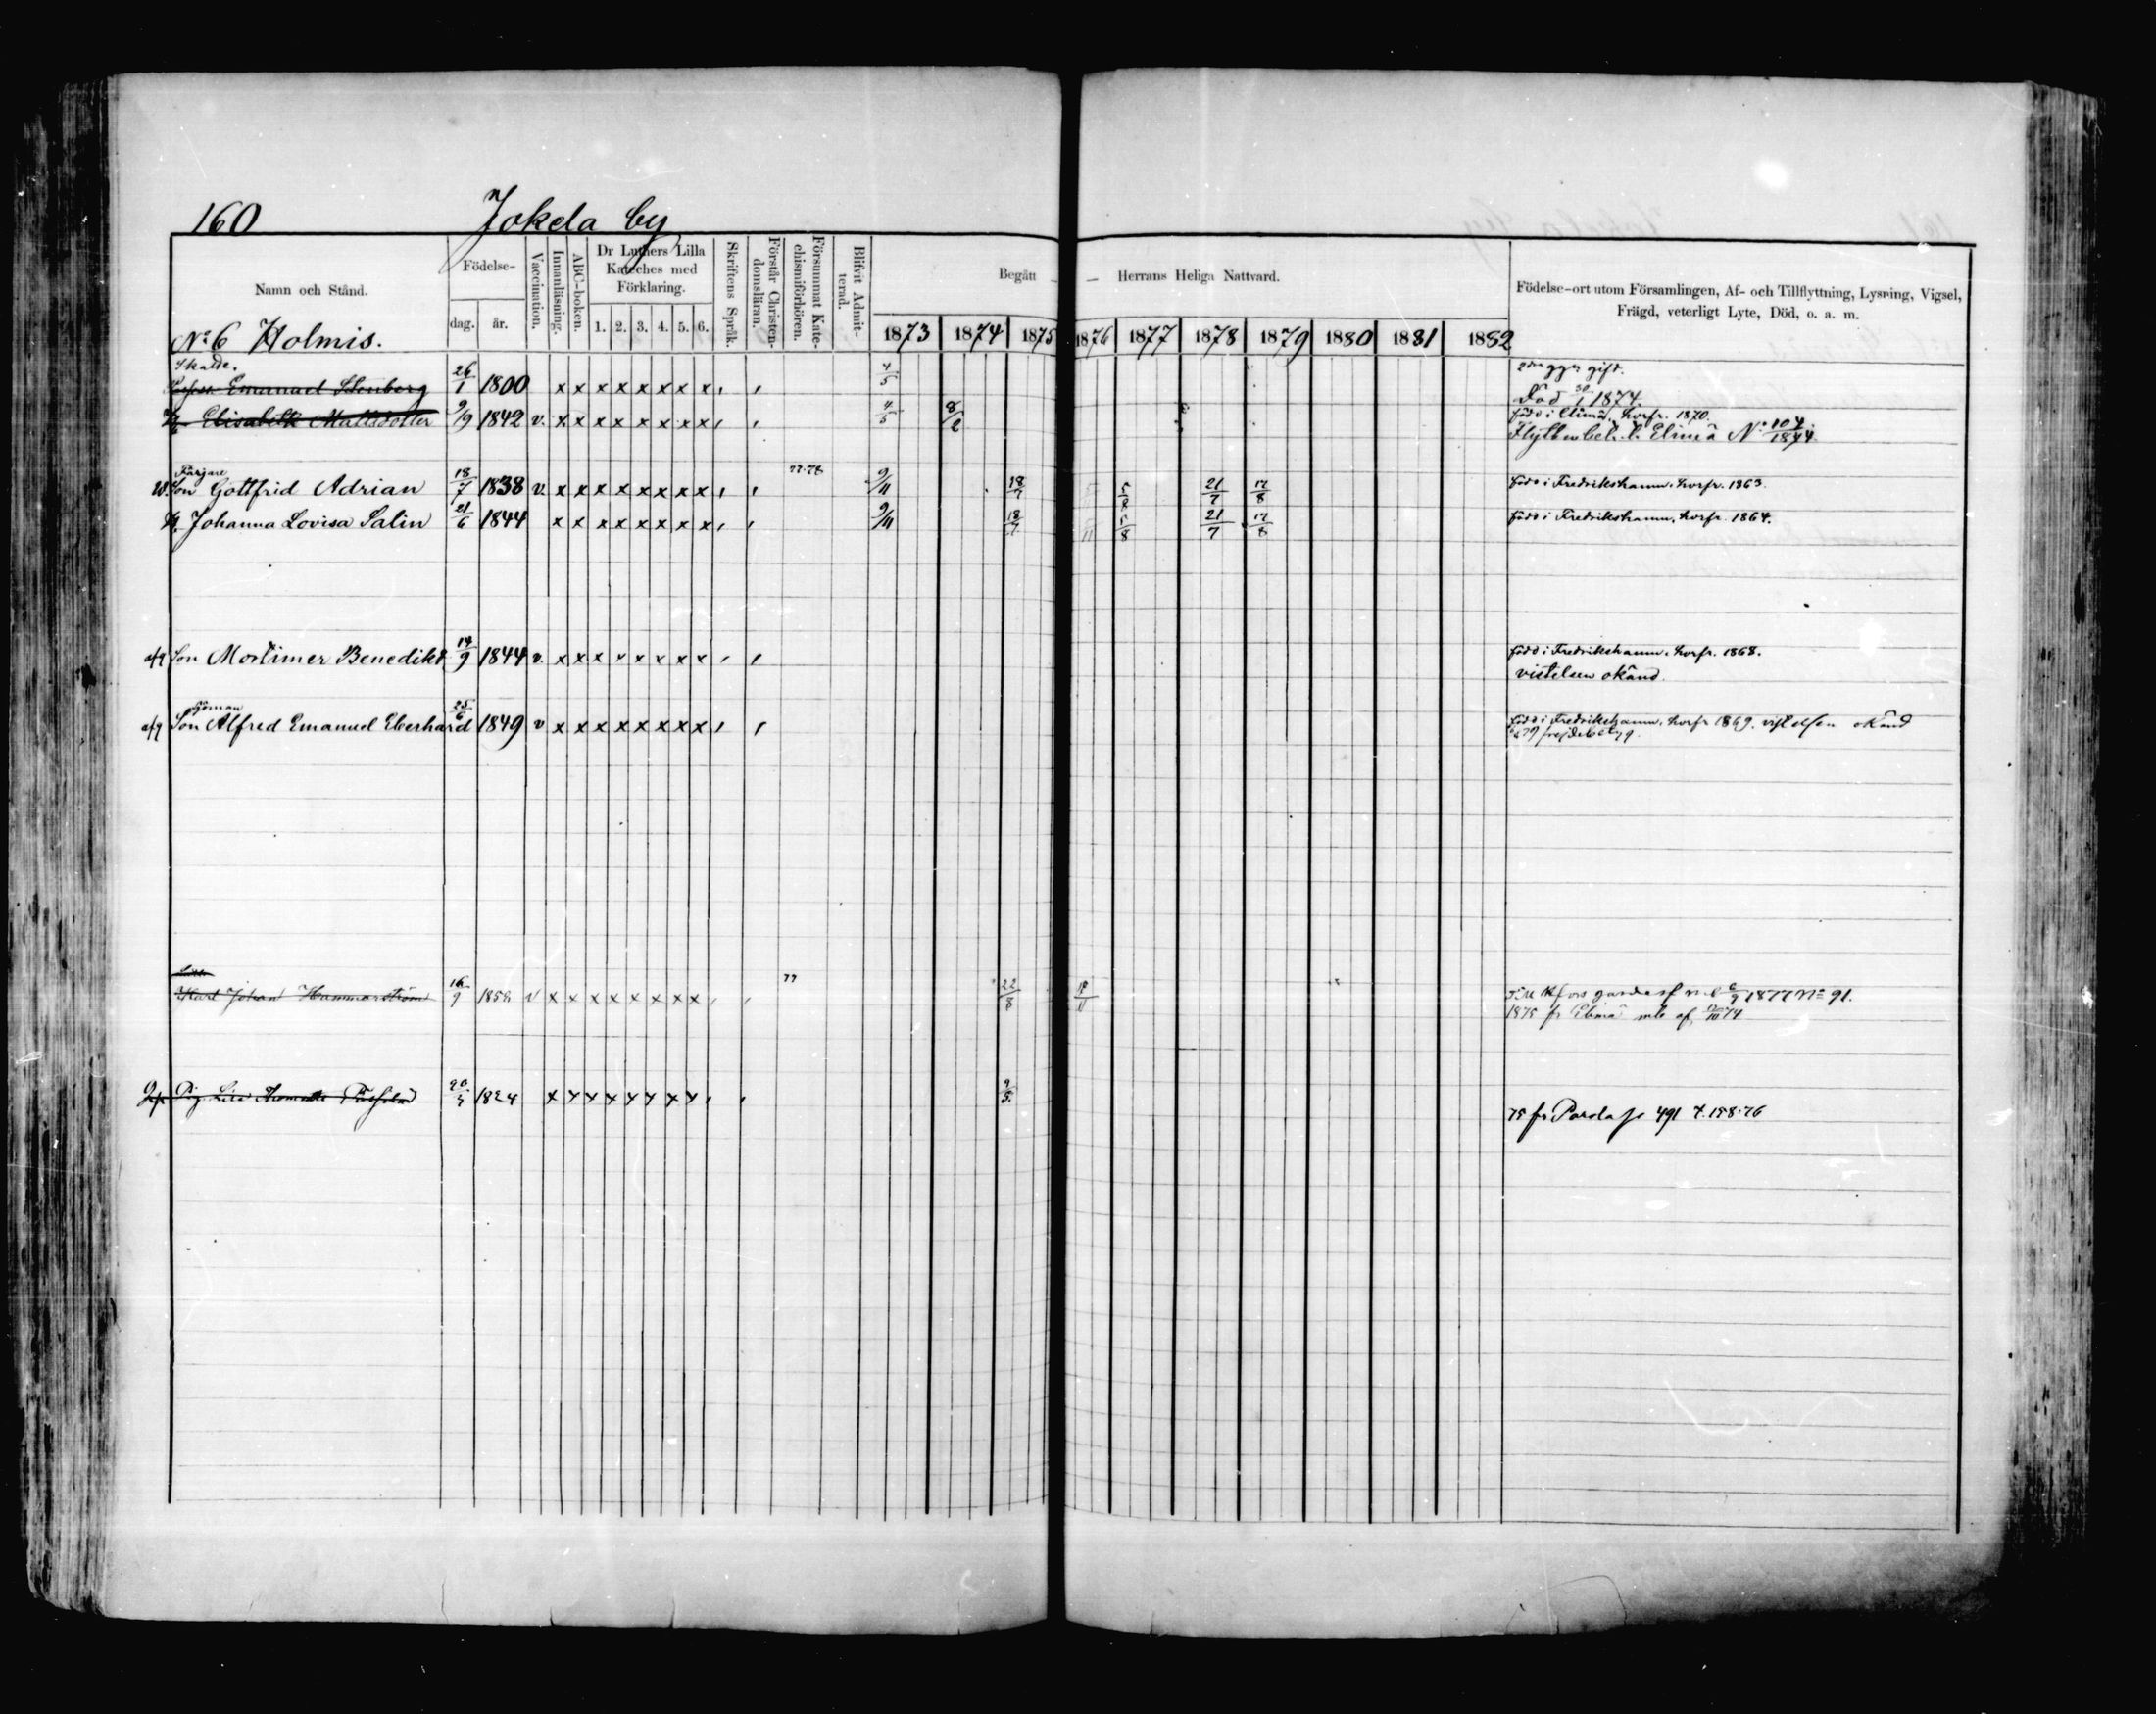 160 Jokela by
Namn och Stånd. Födelse- dag. år. Vaccination. Innanläsning. ABC-boken. Dr Luthers Lilla Kateches med Förklaring. 1. 2. 3. 4. 5. 6. Skriftens Språk. Förstår Christendomsläran. Försummat Katechismiförhören. Blifvit Admitterad. Begått — Herrans Heliga Nattvard. Födelse-ort utom Församlingen, Af- och Tillflyttning, Lysning, Vigsel, Frägd, veterligt Lyte, Död, o. a. m.
1873 1874 1875 1876 1877 1878 1879 1880 1881 1882
No 6 Holmis.
Emanuel Stenberg 26/1 1800 x x x x x x x x , , 4/5 gift.
Död 30/1 1874.
Elisabeth Mattsdotter 9/9 1842 v. x x x x x x x x , , 4/5 8/2 född i Elimä, horfr. 1870.
Flyttnbet. t. Elimä No 104/1844.
Färgare
Son Gottfrid Adrian 18/7 1838 v. x x x x x x x x , , 77.78 9/11 18/7 5/8 21/7 17/8 född i Fredrikshamn, horfr. 1863.
H. Johanna Lovisa Salin 21/6 1844 x x x x x x x x , , 9/11 18/7 5/8 21/7 17/8 född i Fredrikshamn, horfr. 1864.
afg Son Mortimer Benedikt 14/9 1844 v. x x x x x x x x , , född i Fredrikshamn, horfr. 1868.
vistelsen okänd.
afg Son Alfred Emanuel Eberhard 25/6 1849 v x x x x x x x x , , född i Fredrikshamn, horfr 1869. vistelsen okänd
79 frejdebetyg.
Karl Johan Hammarström 16/9 1858 v x x x x x x x x , , 77 22/8 1877 No 91.
1875 fr Elimä mb af 74
Pig. Lisa 20/3 1824 x x x x x x x x , , 9/5
75 fr Parda 491 t. 158.76